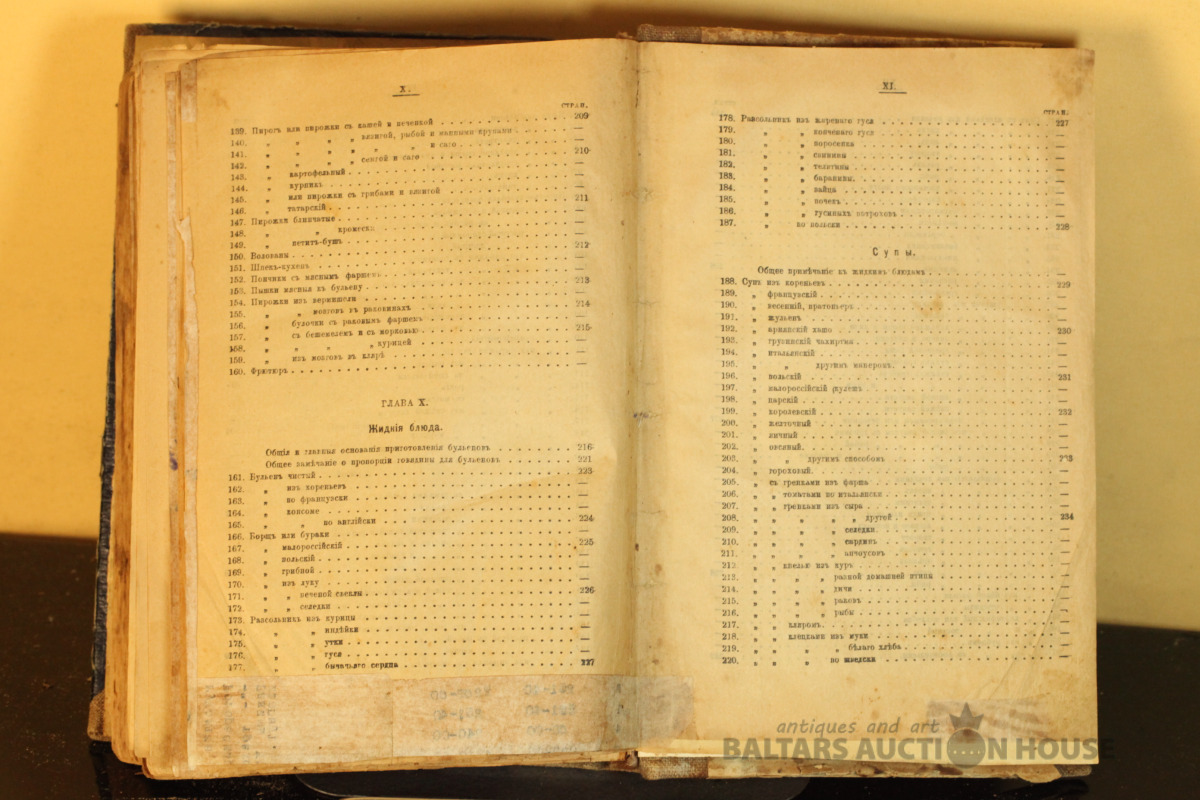 X.
СТРАН.
139. Пирогъ или пирожки съ кашей и печенкой 209
140. „ „ „ „ вязигой, рыбой и манными крупами —
141. „ „ „ „ „ „ и саго —
142. „ „ „ „ семгой и саго 210
143. „ картофельный —
144. „ курникъ —
145. „ или пирожки съ грибами и вязигой —
146. „ татарскій 211
147. Пирожки блинчатые —
148. „ „ кромески —
149. „ петитъ-бушъ —
150. Волованы 212
151. Шпекъ-кухенъ —
152. Пончики съ мяснымъ фаршемъ —
153. Пышки мясныя къ бульону 213
154. Пирожки изъ вермишели —
155. „ „ мозговъ въ раковинахъ 214
156. „ булочки съ раковымъ фаршемъ —
157. „ съ бешемелемъ и съ морковью 215
158. „ „ „ „ курицей —
159. „ изъ мозговъ въ клярѣ —
160. Фрютюръ —
ГЛАВА X.
Жидкія блюда.
Общія и главныя основанія приготовленія бульеновъ 216
Общее замѣчаніе о пропорціи говядины для бульеновъ 221
161. Бульенъ чистый 223
162. „ изъ кореньевъ —
163. „ по французски —
164. „ консоме —
165. „ „ по англійски 224
166. Борщъ или бураки —
167. „ малороссійскій 225
168. „ польскій —
169. „ грибной —
170. „ изъ луку —
171. „ „ печеной свеклы 226
172. „ „ селедки —
173. Разсольникъ изъ курицы —
174. „ „ индѣйки —
175. „ „ утки —
176. „ „ гуся —
177. „ „ бычачьяго сердца 227
XI.
СТРАН.
178. Разсольникъ изъ жаренаго гуся 227
179. „ „ копченаго гуся —
180. „ „ поросенка —
181. „ „ свинины —
182. „ „ телятины —
183. „ „ баранины —
184. „ „ зайца —
185. „ „ почекъ —
186. „ „ гусиныхъ потроховъ —
187. „ по польски 228
Супы.
Общее примѣчаніе къ жидкимъ блюдамъ —
188. Супъ изъ кореньевъ 229
189. „ французскій —
190. „ весенній, прятоньеръ —
191. „ жульенъ —
192. „ армянскій хашо 230
193. „ грузинскій чахиртма —
194. „ итальянскій —
195. „ „ другимъ манеромъ —
196. „ польскій 231
197. „ малороссійскій кулешъ —
198. „ царскій —
199. „ королевскій 232
200. „ желточный —
201. „ яичный —
202. „ овсяный —
203. „ „ другимъ способомъ 233
204. „ гороховый —
205. „ съ гренками изъ фарша —
206. „ „ томатами по итальянски —
207. „ „ гренками изъ сыра —
208. „ „ „ „ „ другой 234
209. „ „ „ „ селедки —
210. „ „ „ „ сардинъ —
211. „ „ „ „ анчоусовъ —
212. „ „ кнелью изъ куръ —
213. „ „ „ „ разной домашней птицы —
214. „ „ „ „ дичи —
215. „ „ „ „ раковъ —
216. „ „ „ „ рыбы —
217. „ „ кляромъ —
218. „ „ клецками изъ муки —
219. „ „ „ „ бѣлаго хлѣба —
220. „ „ „ по шведски —
antiques and art
BALTARS AUCTION HOUSE